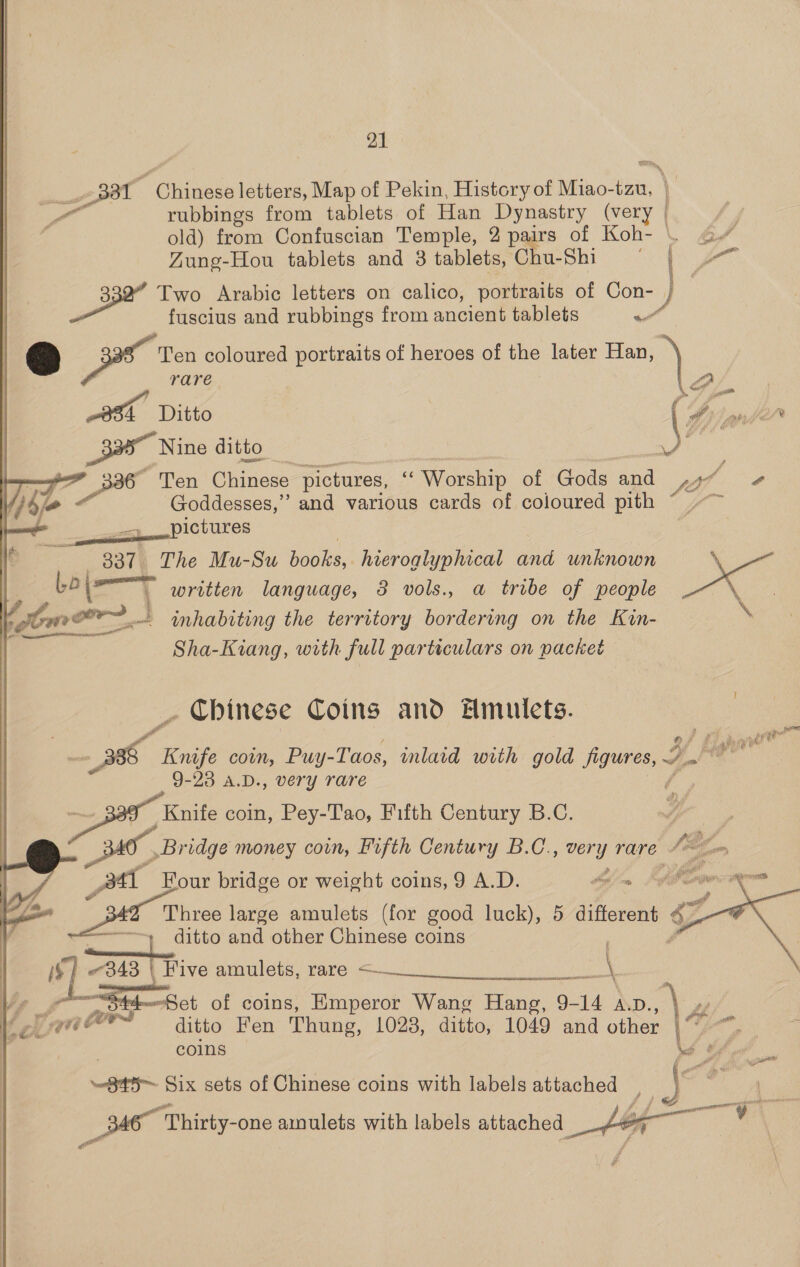 21
331 Chinese letters, Map of Pekin, History of Miao-tzu,
rubbings from tablets of Han Dynastry (very
old) from Confuscian Temple, 2 pairs of Koh-
Zung-Hou tablets and 3 tablets, Chu-Shi
332 Two Arabic letters on calico, portraits of Con-
fuscius and rubbings from ancient tablets
333 Ten coloured portraits of heroes of the later Han,
rare
334 Ditto
335 Nine ditto
336 Ten Chinese pictures, “Worship of Gods and
Goddesses,” and various cards of coloured pith
pictures
337 The Mu-Su books, hieroglyphical and unknown
written language, 3 vols., a tribe of people
inhabiting the territory bordering on the Kin-
Sha-Kiang, with full particulars on packet
Chinese Coins and Amulets.
338 Knife coin, Puy-Taos, inlaid with gold figures,
9-23 A.D., very rare
339 Knife coin, Pey-Tao, Fifth Century B.C.
340 Bridge money coin, Fifth Century B.C., very rare
341 Four bridge or weight coins, 9 A.D.
342 Three large amulets (for good luck), 5 different
ditto and other Chinese coins
343 Five amulets, rare
344 Set of coins, Emperor Wang Hang, 9-14 A.D.,
ditto Fen Thung, 1023, ditto, 1049 and other
coins
345 Six sets of Chinese coins with labels attached
346 Thirty-one amulets with labels attached